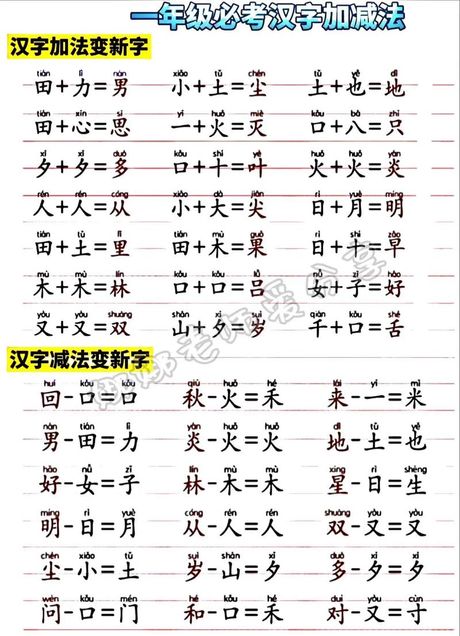 一年级必考汉字加减法
汉字加法变新字
tián lì nán xiǎo tǔ chén tǔ yě dì
田+力=男 小+土=尘 土+也=地
tián xīn sī yī huǒ miè kǒu bā zhǐ
田+心=思 一+火=灭 口+八=只
xī xī duō kǒu shí yè huǒ huǒ yán
夕+夕=多 口+十=叶 火+火=炎
rén rén cóng xiǎo dà jiān rì yuè míng
人+人=从 小+大=尖 日+月=明
tián tǔ lǐ tián mù guǒ rì shí zǎo
田+土=里 田+木=果 日+十=早
mù mù lín kǒu kǒu lǚ nǚ zǐ hǎo
木+木=林 口+口=吕 女+子=好
yòu yòu shuāng shān xī suì qiān kǒu shé
又+又=双 山+夕=岁 千+口=舌
汉字减法变新字
huí kǒu kǒu qiū huǒ hé lái yī mǐ
回-口=口 秋-火=禾 来-一=米
nán tián lì yán huǒ huǒ dì tǔ yě
男-田=力 炎-火=火 地-土=也
hǎo nǚ zǐ lín mù mù xīng rì shēng
好-女=子 林-木=木 星-日=生
míng rì yuè cóng rén rén shuāng yòu yòu
明-日=月 从-人=人 双-又=又
chén xiǎo tǔ suì shān xī duō xī xī
尘-小=土 岁-山=夕 多-夕=夕
wèn kǒu mén hé kǒu hé duì yòu cùn
问-口=门 和-口=禾 对-又=寸
娜娜老师爱分享